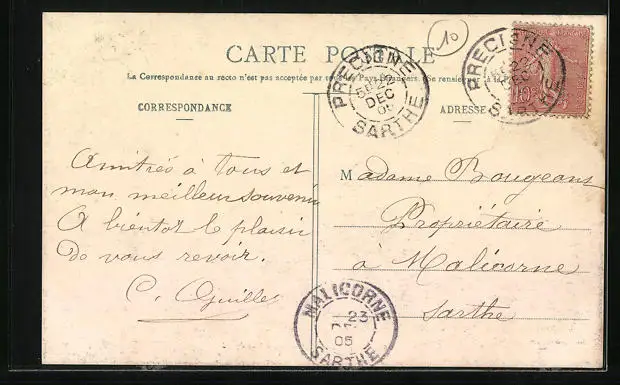 10
CARTE POSTALE
La Correspondance au recto n'est pas acceptée par tous les Pays étrangers. (Se renseigner à la
PRECIGNÉ
22
DEC
05
SARTHE
PRECIGNÉ
22
DEC
SARTHE
10
CORRESPONDANCE
ADRESSE
Amitiés à tous et
mon meilleur souvenir
A bientot le plaisir
de vous revoir.
C.
Madame Bougeans
Propriétaire
à Malicorne
Sarthe
MALICORNE
23
05
SARTHE